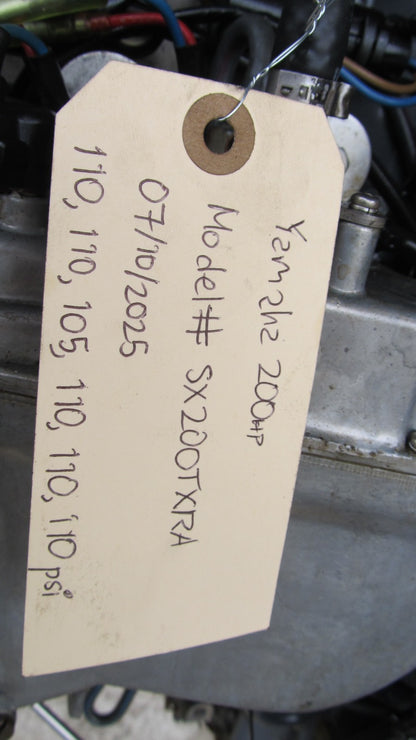 Yamaha 200HP
Model# SX200TXRA
07/10/2025
110, 110, 105, 110, 110, 110 psi